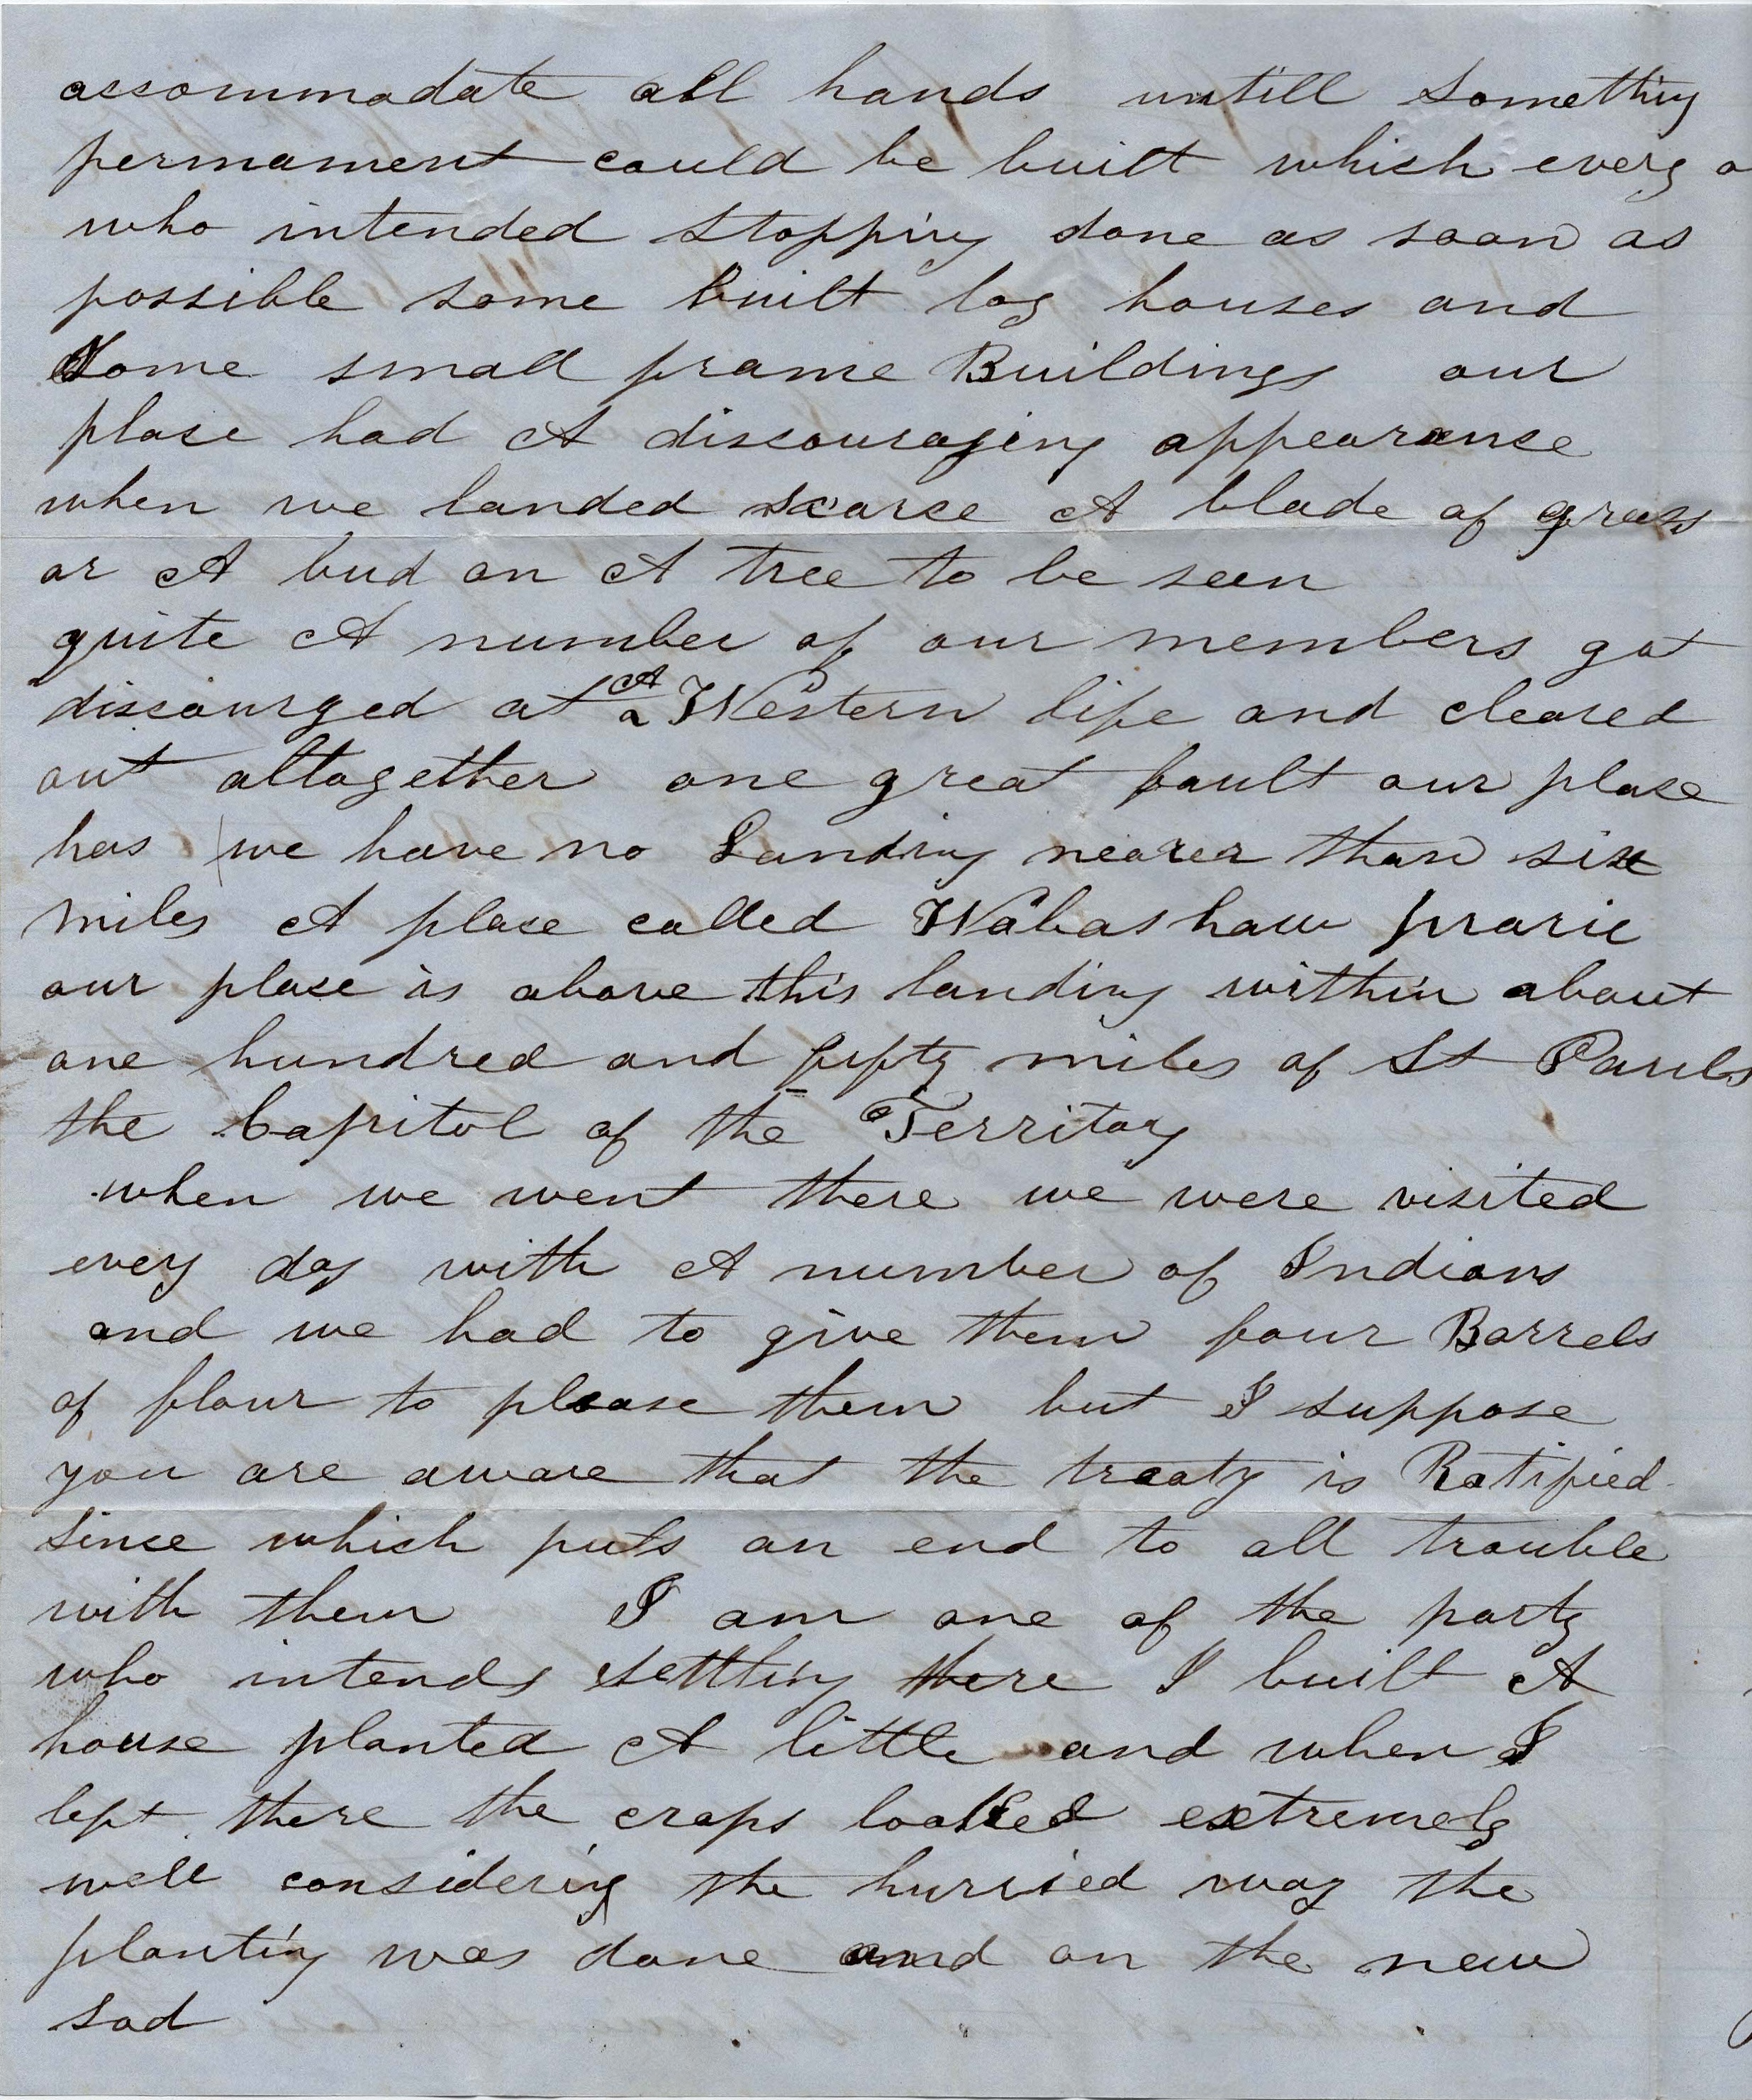 accommodate all hands untill something
permament could be built which every o
who intended stopping done as soon as
possible some built log houses and
Some small frame Buildings our
place had A discouraging appearance
when we landed scarce A blade of grass
or A bud on A tree to be seen
quite A number of our members got
discourged at a A Western life and cleared
out altogether one great fault our place
has we have no Landing nearer than six
miles A place called Wabashaw prarie
our place is above this landing within about
one hundred and fifty miles of St Pauls
the Capitol of the Territory
when we went there we were visited
every day with A number of Indians
and we had to give them four Barrels
of flour to please them but I suppose
you are aware that the treaty is Ratified
since which puts an end to all trouble
with them I am one of the party
who intends settling there I built A
house planted A little and when I
left there the crops looked extremely
well considering the hurried way the
planting was done and on the new
sod